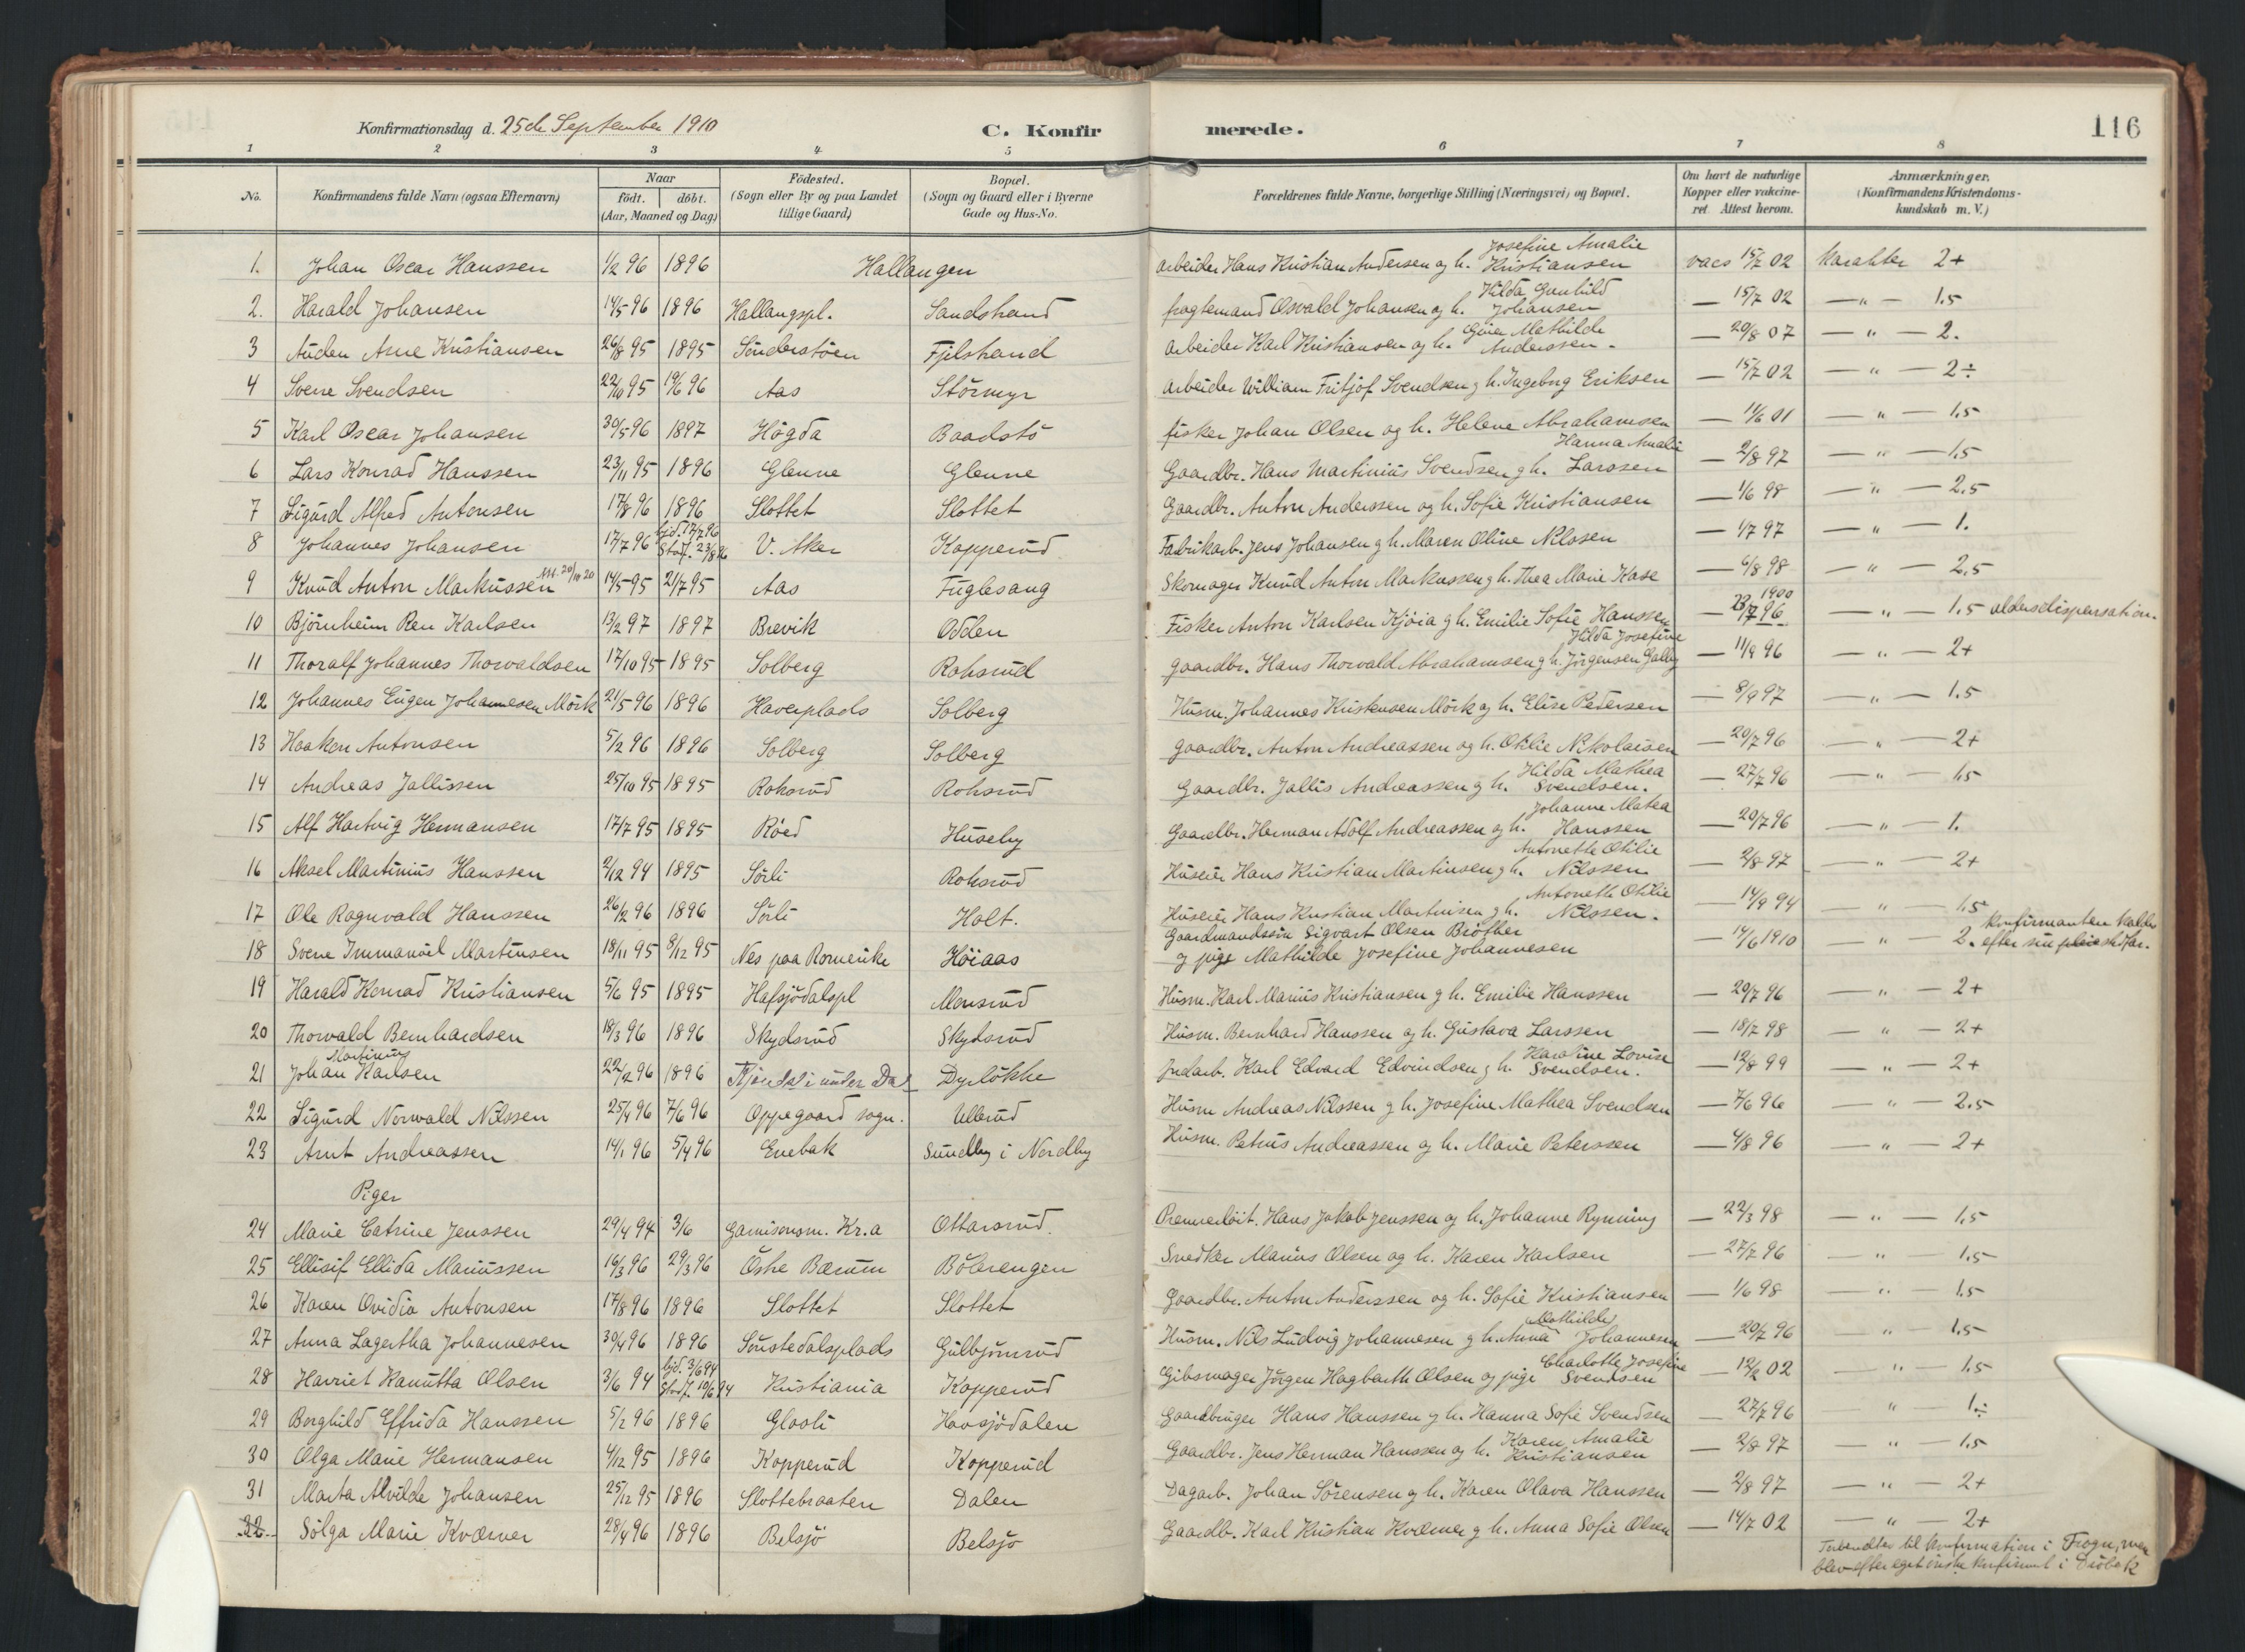 Konfirmationsdag d. 25de September 1910 C. Konfirmerede. 116
1 2 3 4 5 6 7 8
No. Konfirmandens fulde Navn (ogsaa Efternavn) Naar födt. döbt. (Aar, Maaned og Dag) Födested. (Sogn eller By og paa Landet tillige Gaard) Bopæl. (Sogn og Gaard eller i Byerne Gade og Hus-No. Forældrenes fulde Navne, borgerlige Stilling (Næringsvei) og Bopæl. Om havt de naturlige Kopper eller vakcineret. Attest herom. Anmærkninger. (Konfirmandens Kristendomskundskab m. V.)
1. Johan Oscar Hanssen 1/2 96 1896 Hallangen arbeider Hans Kristian Andersen og h. Josefine Amalie Kristiansen vacs 15/7 02 Karakter 2+
2. Harald Johansen 14/5 96 1896 Hallangspl. Sandstrand fragtemand Osvald Johansen og h. Hilda Gunhild Johansen — 15/7 02 — " — 1.5
3 Auden Arne Kristiansen 26/8 95 1895 Sönderstöen Fjelstrand arbeider Karl Kristiansen og h. Gina Mathilde Anderssen. — 20/8 07 — " — 2.
4 Sverre Svendsen 22/10 95 19/6 96 Aas Störmyr arbeider William Fritjof Svendsen og h. Ingeborg Eriksen — 15/7 02 — " — 2÷
5 Karl Oscar Johansen 30/5 96 1897 Högda Baadstö fisker Johan Olsen og h. Helene Abrahamsen — 11/6 01 — " — 1.5
6 Lars Konrad Hanssen 23/11 95 1896 Glenne Glenne Gaardbr. Hans Martinius Svendsen og h. Hanna Amalie Larssen — 2/8 97 — " — 1.5
7 Sigurd Alfred Antonsen 17/8 96 1896 Slottet Slottet Gaardbr. Anton Anderssen og h. Sofie Kristiansen — 1/6 98 — " — 2.5
8 Johannes Johansen 17/7 96 hjd. 17/7 96 Stadf. 23/8 96 V. Aker Kopperud Fabrikarb. Jens Johansen og h. Maren Oline Nilssen — 1/7 97 — " — 1.
9 Knud Anton Markussen Att. 20/10 20 14/5 95 21/7 95 Aas Fuglesang Skomager Knud Anton Markussen og h. Thea Marie Kase — 6/8 98 — " — 2.5
10 Björnheim Ren Karlsen 13/2 97 1897 Brevik Odden Fisker Anton Karlsen Kjöia og h. Emilie Sofie Hanssen — 23/7 96 1900 — " — 1.5 aldersdispensation.
11 Thoralf Johannes Thorvaldsen 17/10 95 1895 Solberg Rohsrud gaardbr. Hans Thorvald Abrahamsen og h. Hilda Josefine Jörgensen Galby — 11/9 96 — " — 2+
12 Johannes Eugen Johannesen Mörk 21/5 96 1896 Haverplads Solberg Husm. Johannes Kristensen Mörk og h. Elise Pedersen — 8/9 97 — " — 1.5
13 Haakon Antonsen 5/2 96 1896 Solberg Solberg gaardbr. Anton Andreassen og h. Otilie Nikolaisen — 20/7 96 — " — 2+
14 Andreas Jallissen 25/10 95 1895 Rohsrud Rohsrud Gaardbr. Jallis Andreassen og h. Hilda Mathea Svendsen. — 27/7 96 — " — 1.5
15 Alf Hartvig Hermansen 17/7 95 1895 Röed Huseby Gaardbr. Herman Adolf Andreassen og h. Johanne Matea Hanssen — 20/7 96 — " — 1.
16 Aksel Martinius Hanssen 2/12 94 1895 Sörli Rohsrud Huseier Hans Kristian Martinsen og h. Antonette Otilie Nilssen — 2/8 97 — " — 2+
17 Ole Ragnvald Hanssen 26/12 96 1896 Sörli Holt. Huseier Hans Kristian Martinsen og h. Antonette Otilie Nilssen. — 14/9 94 — " — 1.5
18 Sverre Immanuel Martinsen 18/11 95 8/12 95 Nes paa Romerike Höiaas Gaardmandssön Sigvart Olsen Bröther og pige Mathilde Josefine Johannesen — 14/6 1910 — " — 2. Konfirmanten kaldes efter sin pleie stiffar.
19 Harald Konrad Kristiansen 5/6 95 1895 Hafsjödalspl Monsrud Husm. Karl Marius Kristiansen og h. Emilie Hanssen — 20/7 96 — " — 2+
20 Thorvald Bernhardsen 18/3 96 1896 Skydsrud Skydsrud Husm. Bernhard Hanssen og h. Gustava Larssen — 18/7 98 — " — 2+
21 Johan Martinius Karlsen 22/12 96 1896 under Dal Dyrlökke Jndarb. Karl Edvard Edvindsen og h. Karoline Lovise Svendsen. — 12/8 99 — " — 2+
22 Sigurd Norwald Nilssen 25/4 96 7/6 96 Oppegaard sogn. Ullerud Husm Andreas Nilssen og h. Josefine Mathea Svendsen — 7/6 96 — " — 2.5
23 Arnt Andreassen 14/1 96 5/4 96 Enebak Sundby i Nordby Husm. Petrus Andreassen og h. Marie Peterssen — 4/8 96 — " — 2+
Piger
24 Marie Catrine Jenssen 29/4 94 3/6 Garnisonsm. Kr.a Ottarsrud. Premierlöit. Hans Jakob Jenssen og h. Johanne Rynning — 22/3 98 — " — 1.5
25 Ellisif Ellida Mariussen 16/3 96 29/3 96 Östre Bærum Bölerengen Snedker Marius Olsen og h. Karen Karlsen — 27/7 96 — " — 1.5
26 Karen Ovidia Antonsen 17/8 96 1896 Slottet Slottet Gaardbr. Anton Anderssen og h. Sofie Kristiansen — 1/6 98 — " — 1.5
27 Anna Lagertha Johannesen 30/4 96 1896 Sönstedalsplads Gulbjörnsrud Husm. Nils Ludvig Johannesen og h. Anna Mathilde Johannesen — 20/7 96 — " — 1.5
28 Harriet Kanutta Olsen 3/6 94 hjd. 3/6 94 Stadf. 10/6 94 Kristiania Kopperud Gibsmager Jörgen Hagbarth Olsen og pige Charlotte Josefine Svendsen — 12/6 02 — " — 1.5
29 Borghild Effrida Hanssen 5/2 96 1896 Glosli Havsjödalen Gaardbruger Hans Hanssen og h. Hanna Sofie Svendsen — 27/7 96 — " — 1÷
30 Olga Marie Hermansen 4/12 95 1896 Kopperud Kopperud Gaardbr. Jens Herman Hanssen og h. Karen Amalie Kristiansen — 2/8 97 — " — 1.5
31 Marta Alvilde Johansen 25/12 95 1896 Slottebraaten Dalen Dagarb. Johan Sörensen og h. Karen Olava Hanssen — 2/8 97 — " — 2+
32. Solga Marie Kværner 28/4 96 1896 Belsjö Belsjö Gaardb. Karl Kristian Kværner og h. Anna Sofie Olsen — 14/7 02 — " — 2+
til Konfirmation i Frogn, men
blev efter eget önske konfirmert i Dröbak